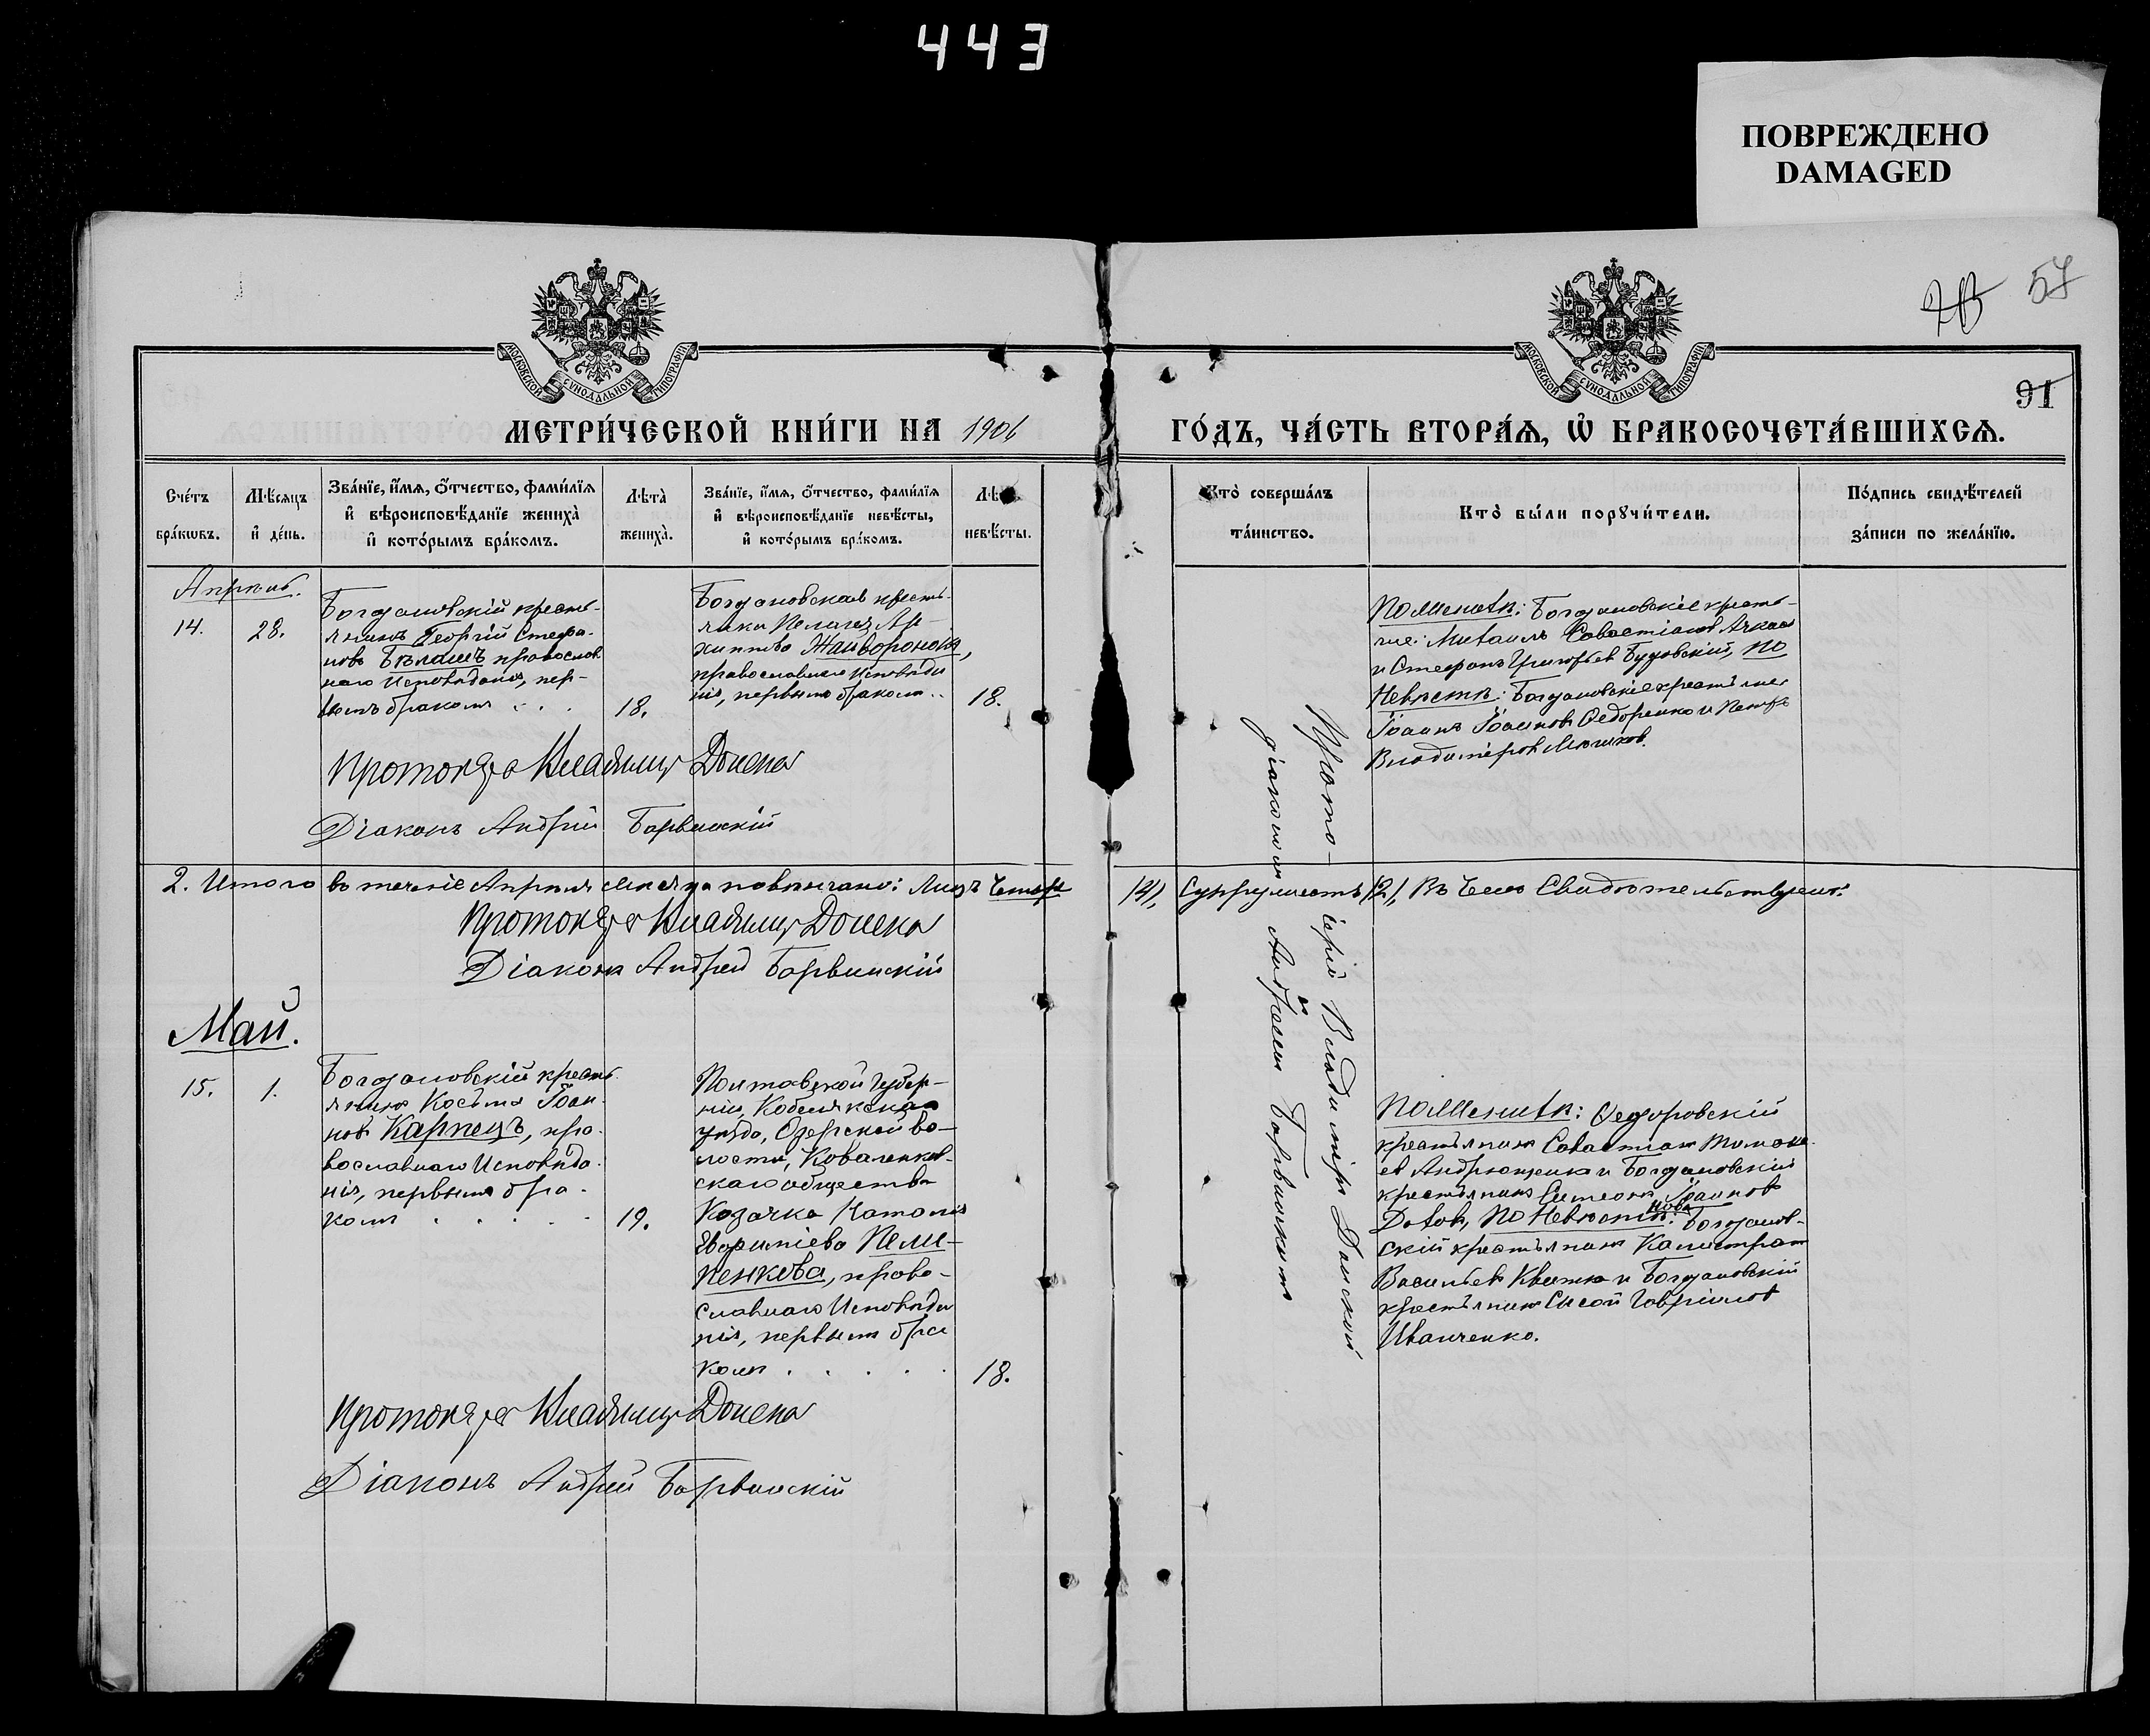 443
ПОВРЕЖДЕНО
DAMAGED
57
91
МОСКОВСКОЙ СѴНОДАЛЬНОЙ ТИПОГРАФІИ
МОСКОВСКОЙ СѴНОДАЛЬНОЙ ТИПОГРАФІИ
МЕТРИ́ЧЕСКОЙ КНИ́ГИ НА 1906 ГО́ДЪ, ЧА́СТЬ ВТОРА́Ѧ, Ѡ҆ БРАКОСОЧЕТА́ВШИХСѦ.
Сче́тъ бра́кѡвъ.
Мѣ́сяцъ и҆ де́нь.
Зва́нїе, и҆́мѧ, ѻ҆́тчество, фами́лїѧ и҆ вѣроисповѣ́данїе жениха̀ и҆ кото́рымъ бра́комъ.
Лѣта̀ жениха̀.
Зва́нїе, и҆́мѧ, ѻ҆́тчество, фами́лїѧ и҆ вѣроисповѣ́данїе невѣ́сты, и҆ кото́рымъ бра́комъ.
Лѣ невѣ́сты.
Кто̀ соверша́лъ та́инство.
Кто̀ бы́ли порꙋчи́тели.
По́дпись свидѣ́телей за́писи по жела́нїю.
Апрѣль.
14.
28.
Богдановскій кресть-
янинъ Георгій Стефа-
новъ Бѣлашъ православ
наго Исповѣданія, пер-
вымъ бракомъ . . .
18.
Богдановская кресть-
янка Пелагея Ар-
хиппова Жаворонова,
православнаго Исповѣда
нія, первымъ бракомъ . .
18.
По Женихѣ: Богдановскіе кресть-
яне: Михаилъ Савастіановъ
и Стефанъ Григорьевъ Будовскій, по
Невѣстѣ: Богдановскіе крестьяне
Іоаннъ Іоанновъ Ѳедоренко и Петръ
Владиміровъ
Протоіерей Владиміръ Донской
Діаконъ Андрей Барвинскій
2. Итого въ теченіе Апрѣля мѣсяца повѣнчано: Лицъ Четыре (4), Супружествъ (2), Въ чемъ Свидѣтельствуемъ:
Протоіерей Владиміръ Донской
Діаконъ Андрей Барвинскій
Прото-іерей Владиміръ Донской
діакономъ Андреемъ Барвинскимъ
Май.
15.
1.
Богдановскій кресть-
янинъ Косьма Іоан-
новъ Карпецъ, пра-
вославнаго Исповѣда-
нія, первымъ бра-
комъ . . . . .
19.
Полтавской Губер-
ніи, Кобелякскаго
уѣзда, Озерской во-
лости, Коваленков-
скаго общества
Козачка Наталія
Пели-
пенкова, право-
славнаго Исповѣда
нія, первымъ бра
комъ . . . . .
18.
По Женихѣ: Ѳедоровскій
крестьянинъ Савастіанъ Тимоѳе-
евъ Андрющенко и Богдановскій
крестьянинъ Симеонъ Іоанновъ
по Невѣстѣ: Богданов-
скій крестьянинъ Калистратъ
Васильевъ Квитко и Богдановскій
крестьянинъ Сисой Гавріиловъ
Иванченко.
Протоіерей Владиміръ Донской
Діаконъ Андрей Барвинскій